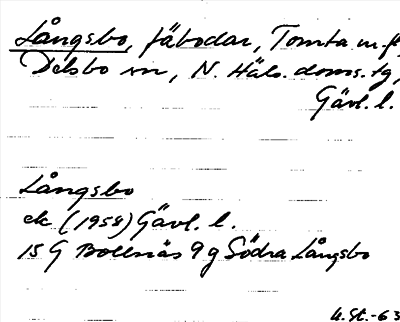 Långsbo, fäbodar, Tomta m.fl.,
Delsbo sn, N. Häls. doms. tg,
Gävl. l.
Långsbo
ek (1958) Gävl. l.
15 G Bollnäs 9 g Södra Långsbo
U. St. -63